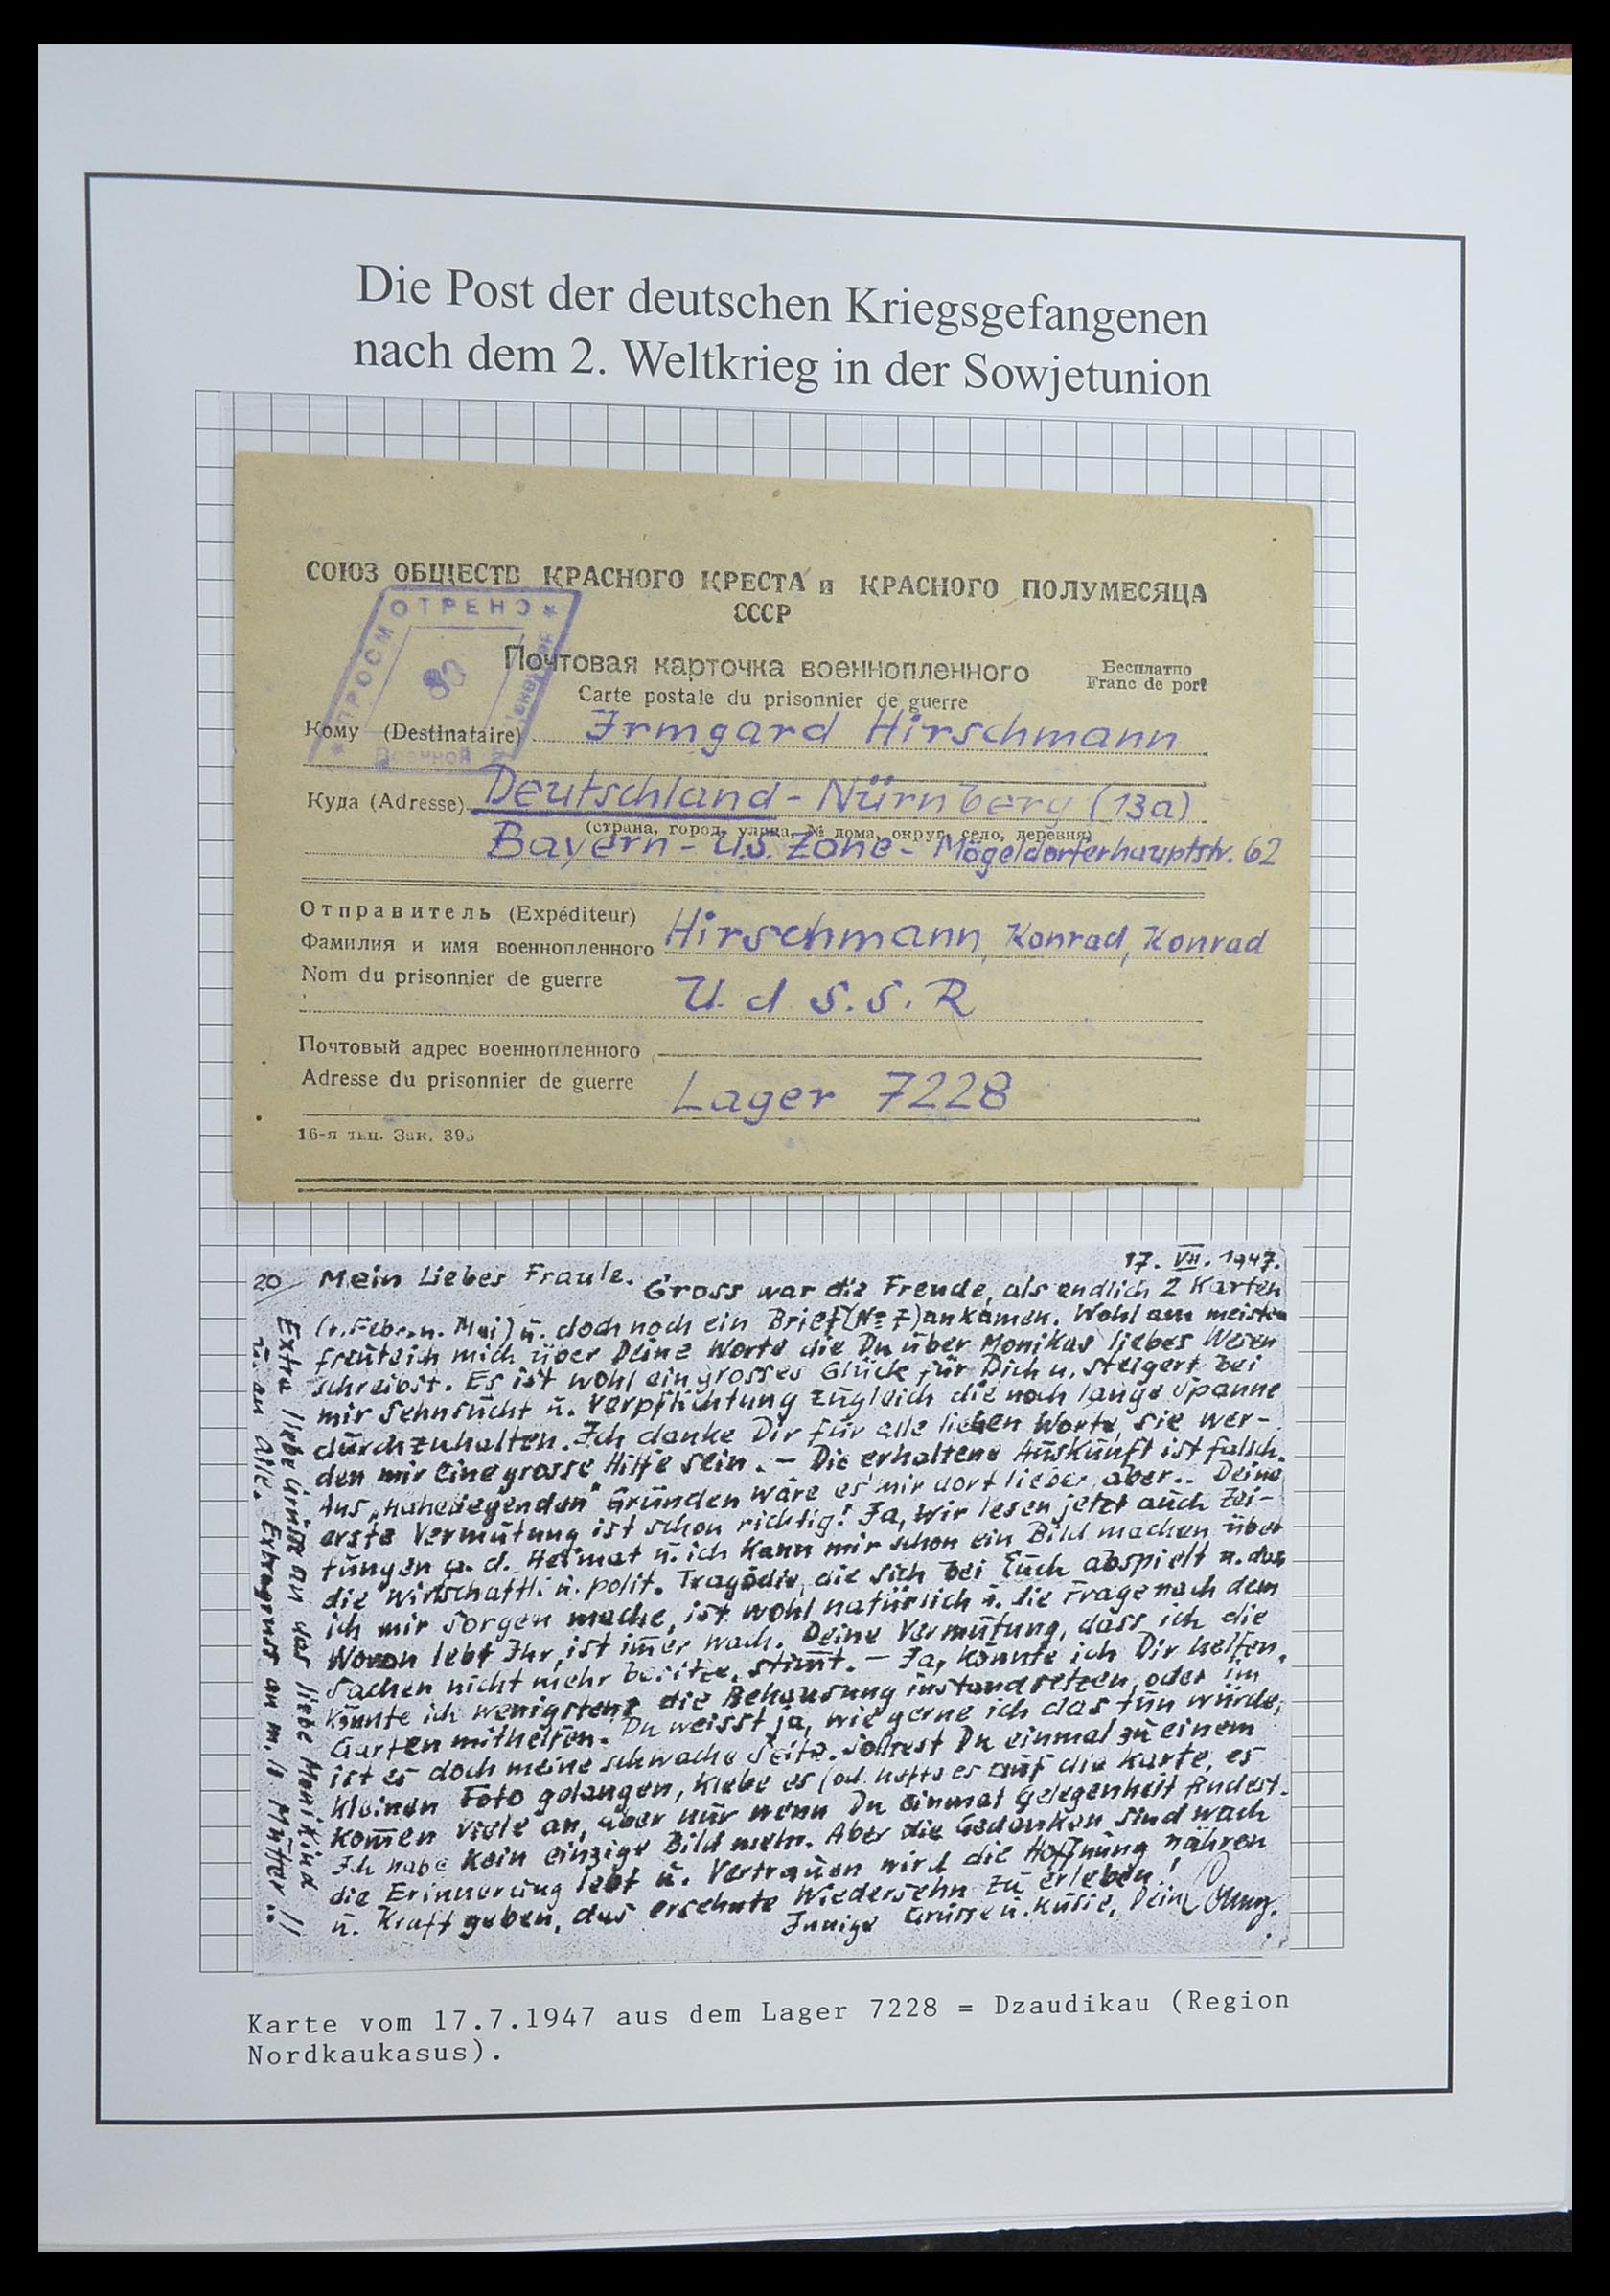 Die Post der deutschen Kriegsgefangenen
nach dem 2. Weltkrieg in der Sowjetunion
СОЮЗ ОБЩЕСТВ КРАСНОГО КРЕСТА и КРАСНОГО ПОЛУМЕСЯЦА
СССР
ПРОСМОТРЕНО
Военной
Почтовая карточка военнопленного
Carte postale du prisonnier de guerre
Бесплатно
Franc de port
Кому (Destinataire) Irmgard Hirschmann
Куда (Adresse) Deutschland - Nürnberg (13a)
(страна, город, улица, № дома, округ, село, деревня)
Bayern - U.S. Zone - Mögeldorferhauptstr. 62
Отправитель (Expéditeur)
Фамилия и имя военнопленного Hirschmann, Konrad, Konrad
Nom du prisonnier de guerre
U. d S. S. R
Почтовый адрес военнопленного
Adresse du prisonnier de guerre Lager 7228
16-я тип. Зак. 395
17. VII. 1947.
20 Mein Liebes Fraule. Gross war die Freude, als endlich 2 Karten
(v. Febr. u. Mai) u. doch noch ein Brief (No 7) ankamen. Wohl am meisten
freute ich mich über Deine Worte die Du über Monikas liebes Wesen
schreibst. Es ist wohl ein grosses Glück für Dich u. steigert bei
mir Sehnsucht u. Verpflichtung zugleich die noch lange Spanne
durchzuhalten. Ich danke Dir für alle lieben Worte, sie wer-
den mir eine grosse Hilfe sein. - Die erhaltene Auskunft ist falsch.
Aus "naheliegenden" Gründen wäre es mir dort lieber, aber.. Deine
erste Vermutung ist schon richtig! Ja, wir lesen jetzt auch Zei-
tungen a. d. Heimat u. ich kann mir schon ein Bild machen über
die wirtschaftl. u. polit. Tragödie, die sich bei Euch abspielt u. dass
ich mir Sorgen mache, ist wohl natürlich u. die Frage nach dem
Wovon lebt Ihr, ist im̄er wach. Deine Vermutung, dass ich die
Sachen nicht mehr besitze, stim̄t. - Ja, könnte ich Dir helfen,
könnte ich wenigstens die Behausung instandsetzen, oder im
Garten mithelfen. Du weisst ja, wie gerne ich das tun würde,
ist es doch meine schwache Seite. Solltest Du einmal zu einem
kleinen Foto gelangen, klebe es (od. hefte es auf die Karte, es
kom̄en viele an, aber nur wenn Du einmal Gelegenheit findest.
Ich habe kein einzige Bild mehr. Aber die Gedanken sind wach
die Erinnerung lebt u. Vertrauen wird die Hoffnung nähren
u. Kraft geben, das ersehnte Wiedersehn zu erleben!
Innige Grüsse u. Küsse, Dein
Extra liebe Grüsse an das liebe Monikind
u. an alle. Extragruss an m. lb Mutter!!
Karte vom 17.7.1947 aus dem Lager 7228 = Dzaudikau (Region
Nordkaukasus).